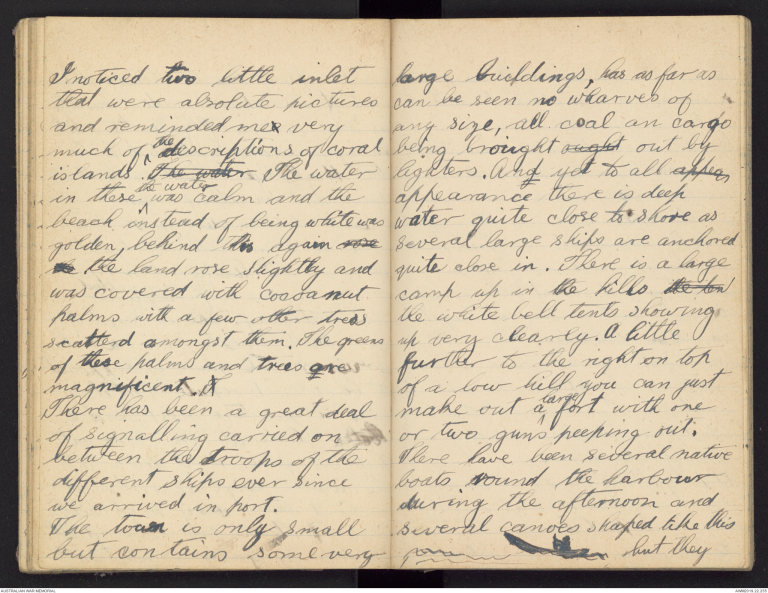 I noticed two little inlet
that were absolute pictures
and reminded me very
much of the descriptions of coral
islands. The water The water
in these the water was calm and the
beach instead of being white was
golden, behind this again rose
the land rose slightly and
was covered with cocoanut
palms with a few other trees
scatterd amongst them. The greens
of these palms and trees are
magnificent. T
There has been a great deal
of signalling carried on
between the troops of the
different ships ever since
we arrived in port.
The town is only small
but contains some very
large buildings, has as far as
can be seen no wharves of
any size, all coal an cargo
being brought ought out by
lighters. And yet to all appear
appearance there is deep
water quite close to shore as
several large ships are anchored
quite close in. There is a large
camp up in the hills the ten
the white bell tents showing
up very clearly. A little
further to the right on top
of a low hill you can just
make out a large fort with one
or two guns peeping out.
There have been several native
boats round the harbour
during the afternoon and
several canoes shaped like this
but they
AUSTRALIAN WAR MEMORIAL
AWM2019.22.235